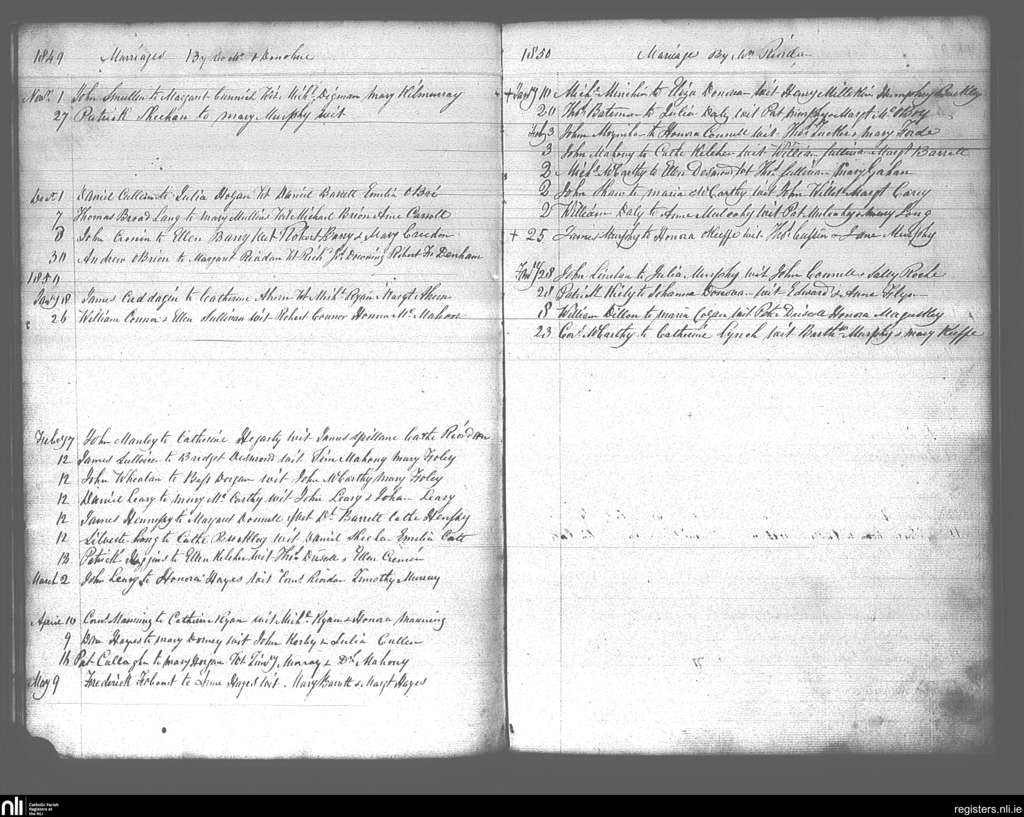 1849 Marriages By Donohue
Novr. 1 John Smullen to Margaret Wit. Michl. Digman Mary Kilmurray
27 Patrick Sheehan to Mary Murphy wit
Decr. 1 Daniel to Julia Hogan Wt Daniel Barrett Emilia
7 Thomas Broad Lang to Mary Mullins Wit Michael Brion Anne Carroll
8 John Cronin to Ellen Barry Wit Robert Barry & Mary Creedon
30 Andrew OBrion to Margaret Riordan Wt Richd. Downing Robert Denham
1850
Jany 18 James Caddagin to Catherine Ahern Wt Michl. Ryan Margt Ahern
26 William Connor & Ellen Sullivan wit Robert Connor Honora Mc. Mahon
Feby 7 John Manley to Catherine Hegarty wit James Spillane Cathe Riordan
12 James Sullivan to Bridget Desmond wit Tim Mahony Mary Foley
12 John Whealan to Bess Dorgan wit John McCarthy Mary Foley
12 Daniel Leary to Mary Mc Carthy wit John Leary & Johan Leary
12 James Hennessy to Margaret Donnell wit Dl. Barrett Cathe Henessy
12 Silvester Long to Cathe Buckley wit Daniel Sheehan Emelia
13 Patrick Higgins to Ellen Keleher wit Thos. Driscoll & Ellen Cremin
March 2 John Leary to Honora Hayes wit Corns Riordan Timothy Murray
April 10 Corns. Manning to Catherine Ryan wit Michl. Ryan & Honora Manning
9 Hayes to Mary Dorney wit John & Julia Cullen
16 Pat Callaghan to Mary Horgan Wt Timy. Murray & Dl. Mahony
May 9 Frederick to Jane Hayes wit. Mary Barrett & Margt Hayes
1850 Marriage By Mr. Riordan
+ Jany 10 Michl. to Eliza Donovan wit Henry Humphrey Buckley
20 Thos. Bateman to Julia Daly wit Pat Murphy Margt.
Feby 3 John Moynihan to Honora Connell wit Thos. Tucker & Mary Forde
3 John Mahony to Cathe Keleher wit William Sullivan Margt Barrett
2 Michl. McCarthy to Ellen Desmond wt Thos. Sullivan Mary Gahan
2 John Shaw to Maria McCarthy wit John Margt Carey
2 William Daly to Anne Mulcahy wit Pat Mulcahy & Mary Long
+ 25 James Murphy to Honora OKeeffe wit Thos. & Jane Murphy
28 John to Julia Murphy wit John Connell & Sally Roche
28 Patrick Kiely to Johanna Donovan wit Edward & Anne Flyn
8 William Dillon to Maria wit Driscoll Honora
23 Cors. McCarthy to Catherine Lynch wit Barthw. Murphy & Mary Keeffe
nli
Catholic Parish
Registers at
the NLI
registers.nli.ie